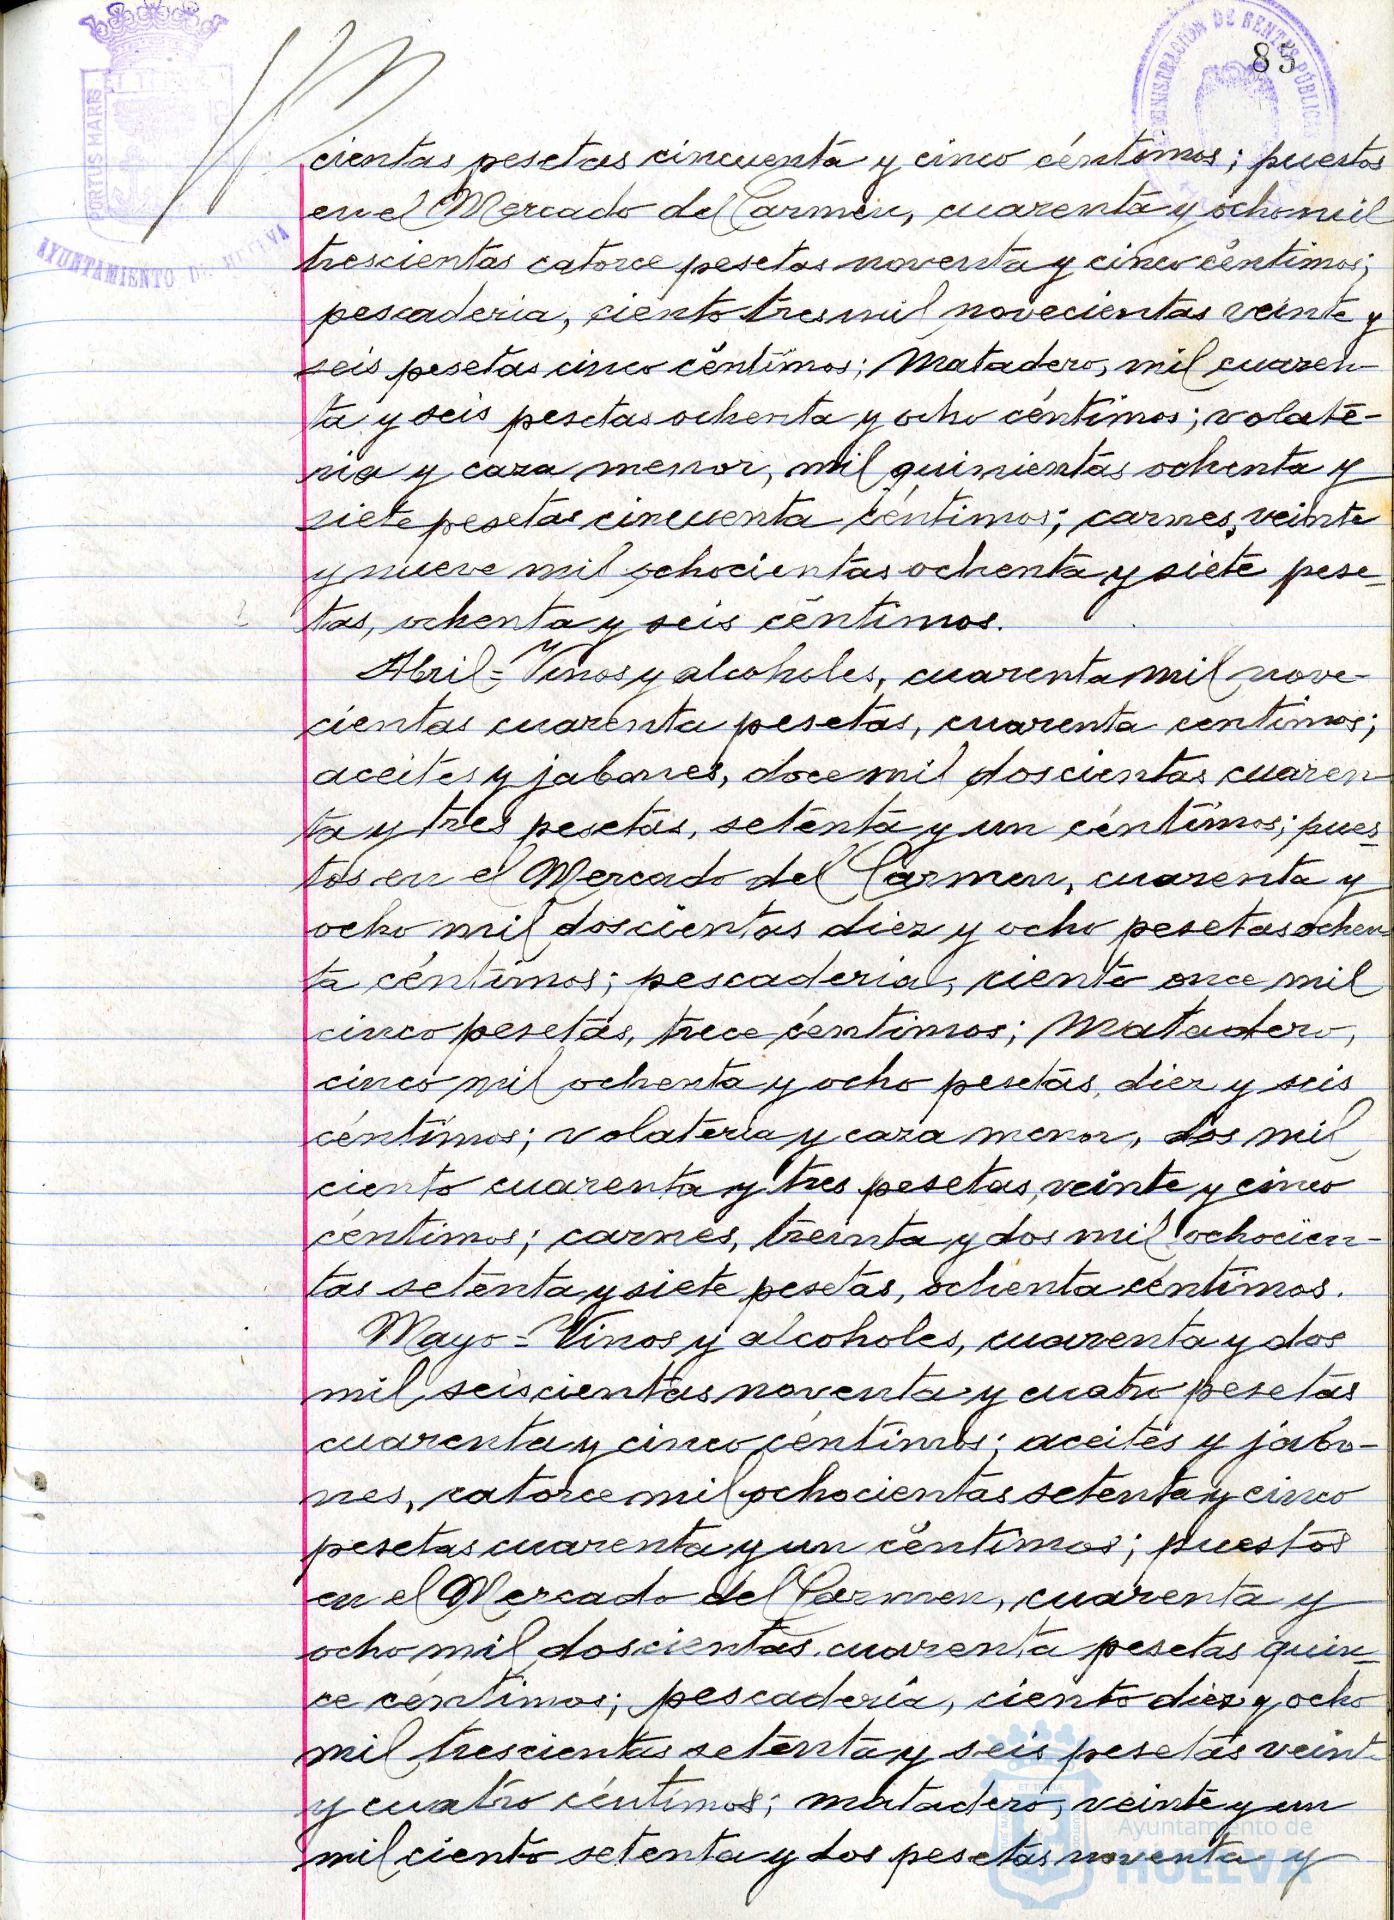 85
ADMINISTRACIÓN DE RENTAS PÚBLICAS
PORTUS MARIS
AYUNTAMIENTO DE HUELVA
cientas pesetas cincuenta y cinco céntimos; puestos
en el Mercado del Carmen, cuarenta y ocho mil
trescientas catorce pesetas noventa y cinco céntimos;
pescaderia, ciento tres mil novecientas veinte y
seis pesetas cinco céntimos; Matadero, mil cuaren-
ta y seis pesetas ochenta y ocho céntimos; volate-
ria y caza menor, mil quinientas ochenta y
siete pesetas cincuenta céntimos; carnes, veinte
y nueve mil ochocientas ochenta y siete pese-
tas, ochenta y seis céntimos.
Abril = Vinos y alcoholes, cuarenta mil nove-
cientas cuarenta pesetas, cuarenta centimos;
aceites y jabones, doce mil doscientas cuaren
ta y tres pesetas, setenta y un céntimos; pues-
tos en el Mercado del Carmen, cuarenta y
ocho mil doscientas diez y ocho pesetas ochen-
ta céntimos; pescaderia, ciento once mil
cinco pesetas, trece céntimos; Matadero,
cinco mil ochenta y ocho pesetas, diez y seis
céntimos; volateria y caza menor, dos mil
ciento cuarenta y tres pesetas, veinte y cinco
céntimos; carnes, treinta y dos mil ochocien-
tas setenta y siete pesetas, ochenta céntimos.
Mayo = Vinos y alcoholes, cuarenta y dos
mil seiscientas noventa y cuatro pesetas
cuarenta y cinco céntimos; aceites y jabo-
nes, catorce mil ochocientas setenta y cinco
pesetas cuarenta y un céntimos; puestos
en el Mercado del Carmen, cuarenta y
ocho mil doscientas cuarenta pesetas quin-
ce céntimos; pescaderia, ciento diez y ocho
mil trescientas setenta y seis pesetas veinte
y cuatro céntimos; matadero, veinte y un
mil ciento setenta y dos pesetas noventa y
Ayuntamiento de
HUELVA